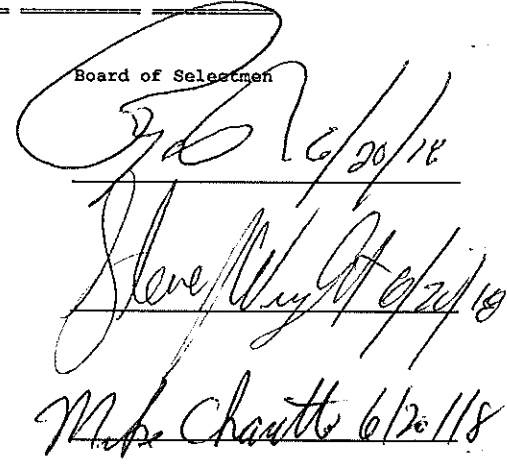 Board of Selectmen
6/20/18
Steve Wright 6/20/18
Mike 6/20/18